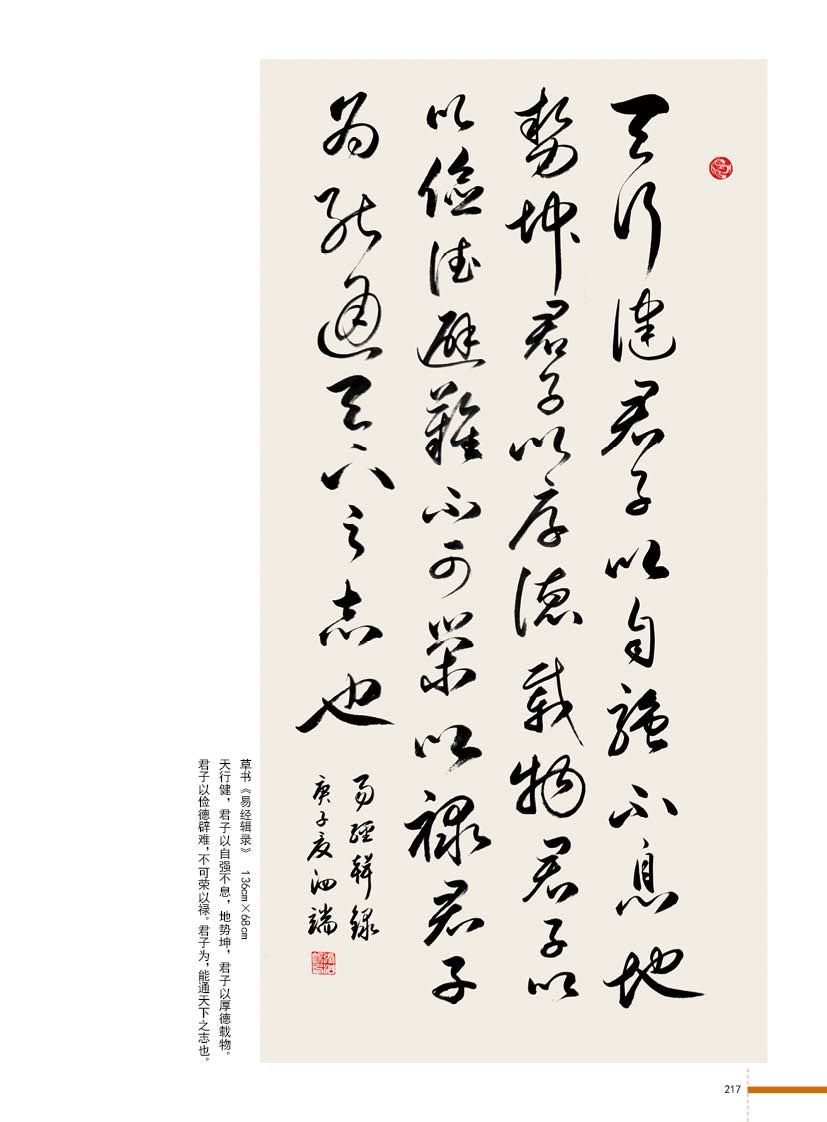 天行健君子以自強不息地
勢坤君子以厚德載物君子以
以儉德避難不可榮以祿君子
为能通天下之志也
易經輯錄
庚子夏泗端
草书《易经辑录》 136cm×68cm
天行健，君子以自强不息，地势坤，君子以厚德载物。
君子以俭德辟难，不可荣以禄。君子为，能通天下之志也。
217